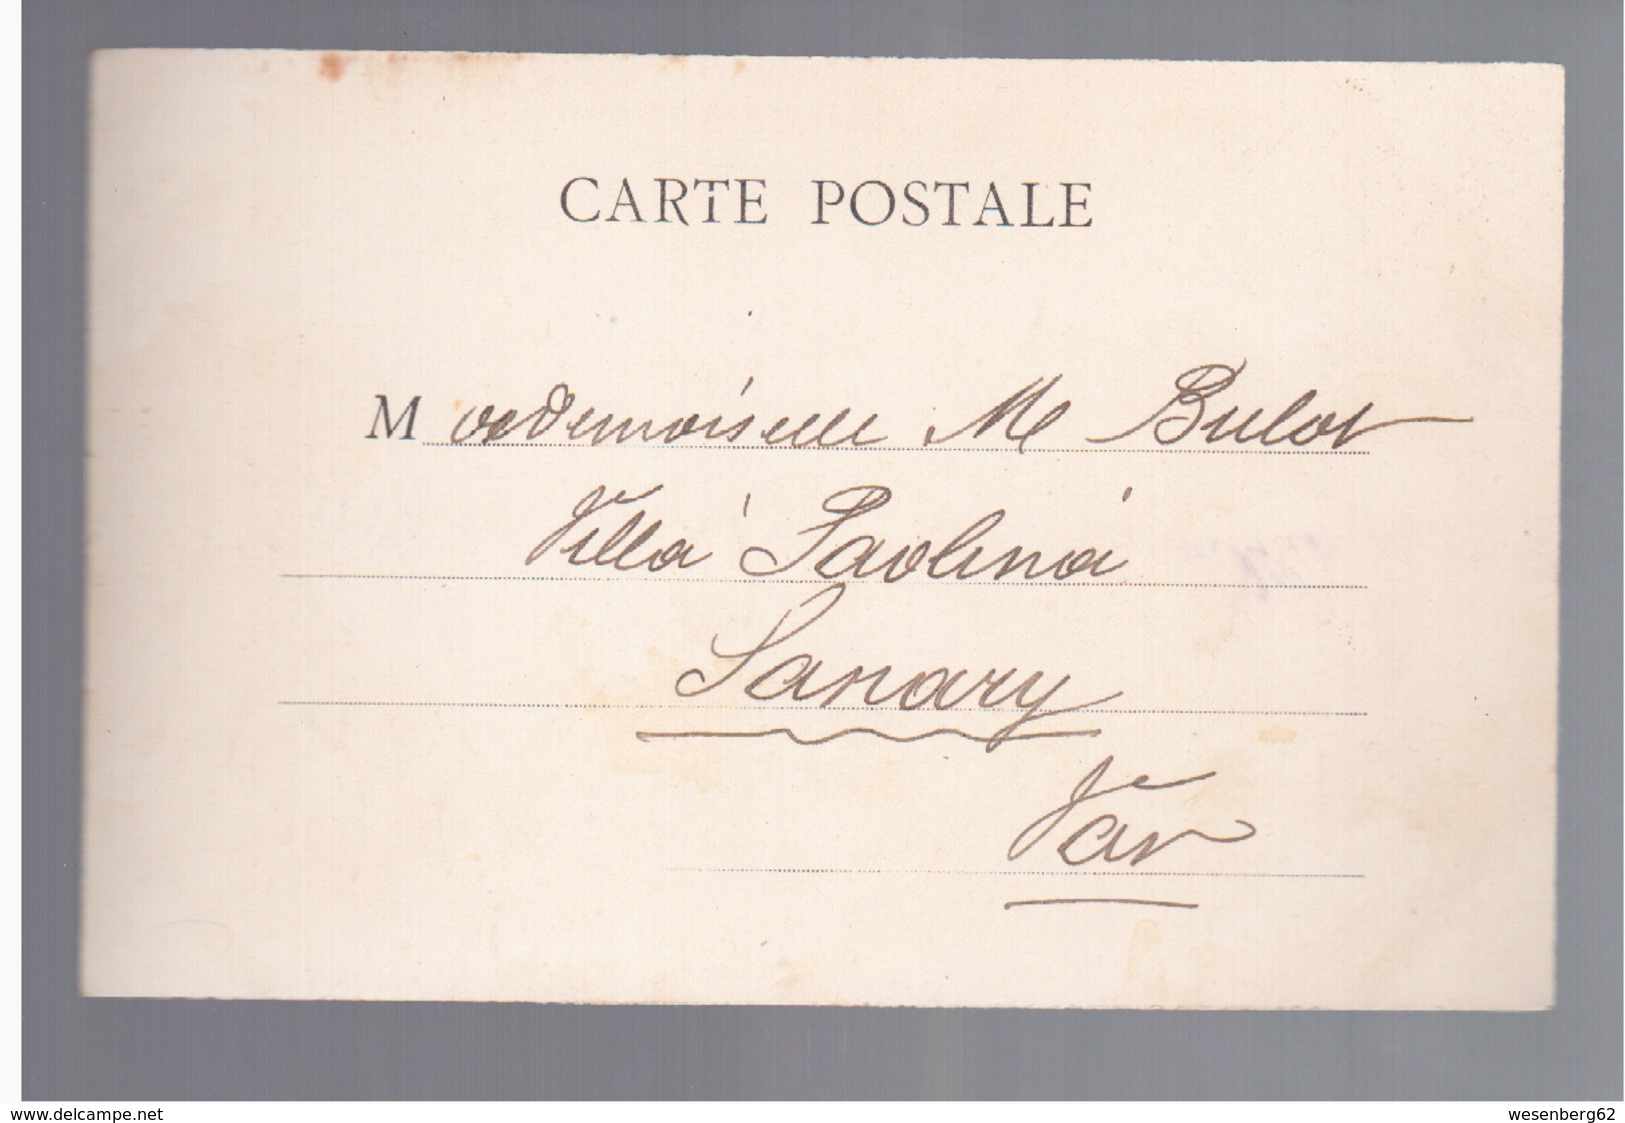 CARTE POSTALE
Mademoiselle M Bulot
Villa Paolina
Sanary
Var
www.delcampe.net
wesenberg62